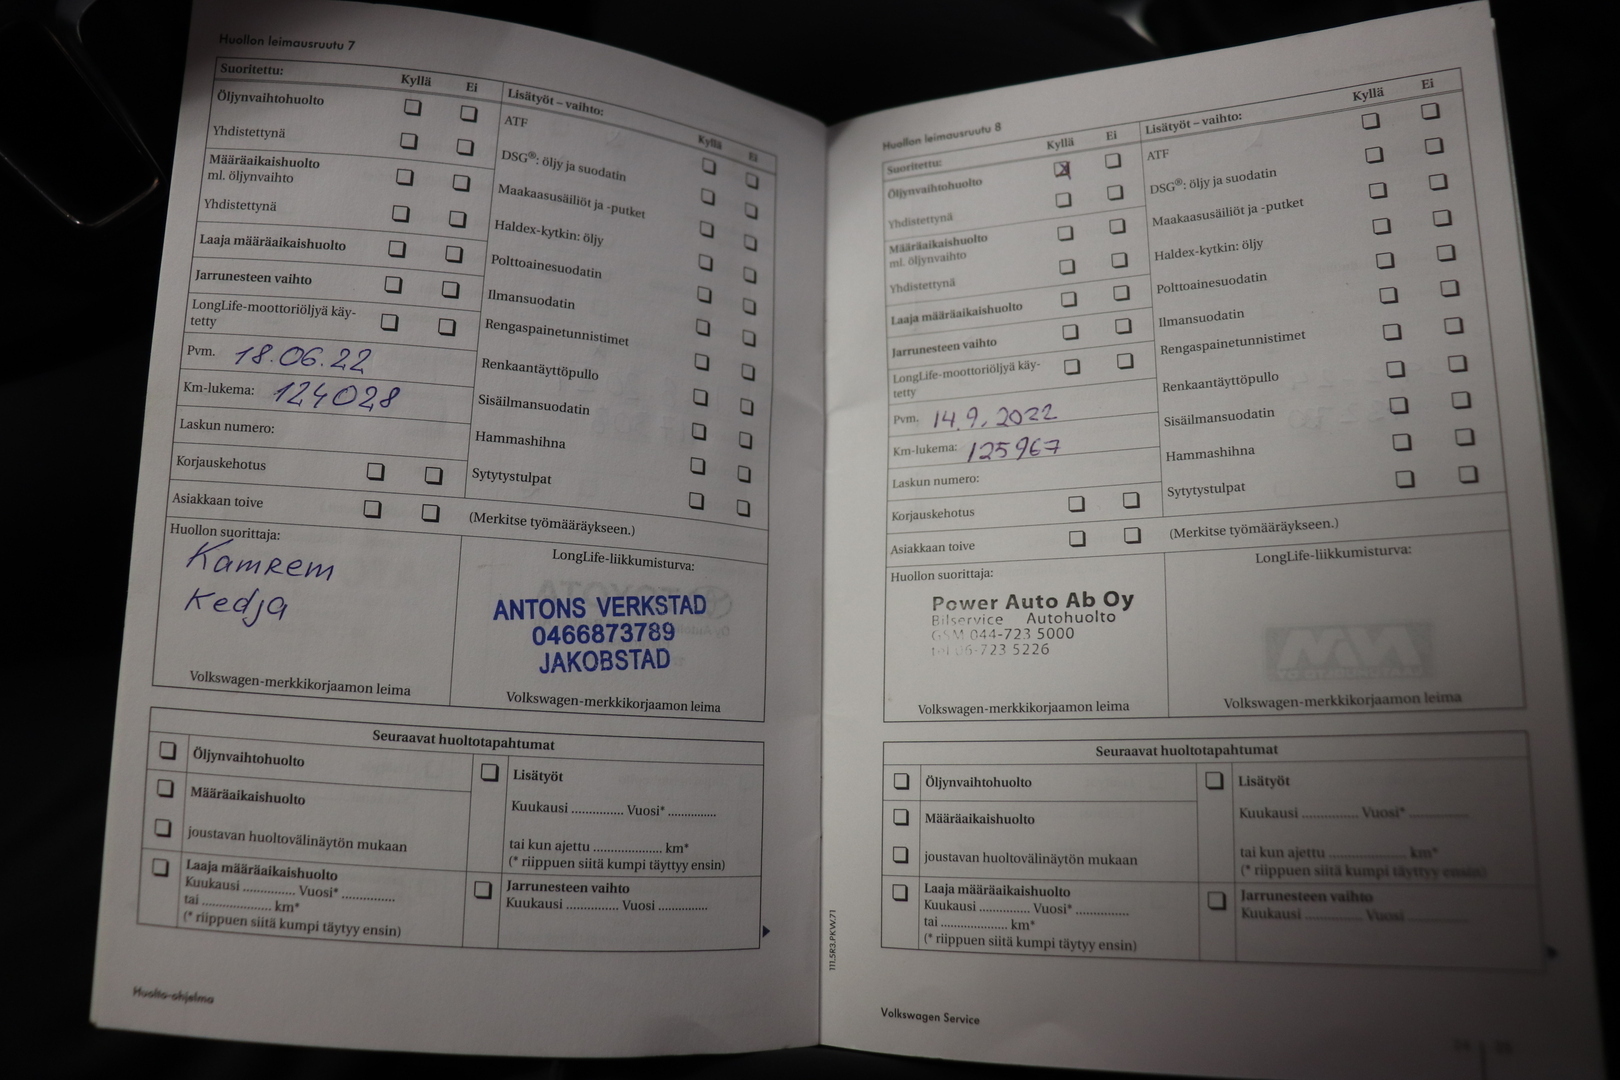 Huollon leimausruutu 7
Suoritettu: Kyllä Ei
Öljynvaihtohuolto
Yhdistettynä
Määräaikaishuolto
ml. öljynvaihto
Yhdistettynä
Laaja määräaikaishuolto
Jarrunesteen vaihto
LongLife-moottoriöljyä käy-
tetty
Pvm. 18.06.22
Km-lukema: 124028
Laskun numero:
Korjauskehotus
Asiakkaan toive
Lisätyöt – vaihto: Kyllä Ei
ATF
DSG®: öljy ja suodatin
Maakaasusäiliöt ja -putket
Haldex-kytkin: öljy
Polttoainesuodatin
Ilmansuodatin
Rengaspainetunnistimet
Renkaantäyttöpullo
Sisäilmansuodatin
Hammashihna
Sytytystulpat
(Merkitse työmääräykseen.)
Huollon suorittaja:
Kamrem
Kedja
Volkswagen-merkkikorjaamon leima
LongLife-liikkumisturva:
ANTONS VERKSTAD
0466873789
JAKOBSTAD
Volkswagen-merkkikorjaamon leima
Seuraavat huoltotapahtumat
Öljynvaihtohuolto
Määräaikaishuolto
joustavan huoltovälinäytön mukaan
Laaja määräaikaishuolto
Kuukausi ............... Vuosi* ...............
tai .................... km*
(* riippuen siitä kumpi täytyy ensin)
Lisätyöt
Kuukausi ............... Vuosi* ..............
tai kun ajettu .................... km*
(* riippuen siitä kumpi täytyy ensin)
Jarrunesteen vaihto
Kuukausi ............... Vuosi ..............
Huolto-ohjelma
Huollon leimausruutu 8
Suoritettu: Kyllä Ei
Öljynvaihtohuolto
Yhdistettynä
Määräaikaishuolto
ml. öljynvaihto
Yhdistettynä
Laaja määräaikaishuolto
Jarrunesteen vaihto
LongLife-moottoriöljyä käy-
tetty
Pvm. 14.9.2022
Km-lukema: 125967
Laskun numero:
Korjauskehotus
Asiakkaan toive
Lisätyöt – vaihto: Kyllä Ei
ATF
DSG®: öljy ja suodatin
Maakaasusäiliöt ja -putket
Haldex-kytkin: öljy
Polttoainesuodatin
Ilmansuodatin
Rengaspainetunnistimet
Renkaantäyttöpullo
Sisäilmansuodatin
Hammashihna
Sytytystulpat
(Merkitse työmääräykseen.)
Huollon suorittaja:
Power Auto Ab Oy
Bilservice Autohuolto
GSM 044-723 5000
tel 06-723 5226
Volkswagen-merkkikorjaamon leima
LongLife-liikkumisturva:
Volkswagen-merkkikorjaamon leima
Seuraavat huoltotapahtumat
Öljynvaihtohuolto
Määräaikaishuolto
joustavan huoltovälinäytön mukaan
Laaja määräaikaishuolto
Kuukausi ............... Vuosi* ...............
tai .................... km*
(* riippuen siitä kumpi täytyy ensin)
Lisätyöt
Kuukausi ............... Vuosi* ...............
tai kun ajettu .................... km*
(* riippuen siitä kumpi täytyy ensin)
Jarrunesteen vaihto
Kuukausi ............... Vuosi ...............
111.5R3.PKW.71
Volkswagen Service